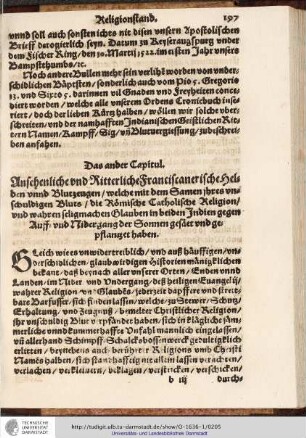 Religionstand. 197
vnnd soll auch sonsten ichts nit disen vnsern Apostolischen
Brieff darogierlich seyn. Datum zu Keyseraugspurg vnder
dem Fischer Ring / den 10. Martij 1522. im ersten Jahr vnsers
Bampsthumbs / ꝛc.
Noch andere Bullen mehr sein verliht worden von vnder-
schidlichen Bäpsten / sonderlich auch vom Pio 5. Gregorio
13. vnd Sixto 5. darinnen vil Gnaden vnd Freyheiten conce-
diert worden / welche alle vnserm Ordens Cronicbuch inse-
riert / doch der lieben Kürtz halben / wöllen wir solche vber-
schreiten / vnd der namhafften Indianischen Geistlichen Rit-
tern Namen / Kampff / Sig / vñ Blutvergiessung / zubeschrei-
ben anfahen.
Das ander Capitul.
Ansehenliche vnd Ritterliche Franciscanerische Hel-
den vnnd Blutzeugen / welche mit dem Samen jhres vn-
schuldigen Bluts / die Römische Catholische Religion /
vnd wahren seligmachen Glauben in beiden Indien gegen
Auff- vnd Nidergang der Sonnen gesäet vnd ge-
pflanzet haben.
GLeich wie es vnwidertreiblich / vnd auß häuffigen / vn-
derschidlichen / glaubwirdigen Historien mänigklichen
bekant / daß beynach aller vnserer Orten / Enden vnnd
Landen / im Nider vnd Vndergang / deß heiligen Euangelij /
wahrer Religion / vnd Glaubens / jederzeit dapffere vnd streit-
bare Barfusser / sich finden lassen / welche / zu Stewer / Schutz /
Erhaltung / vnd Zeugnuß / bemelter Christlicher Religion /
jhr vnschuldig Blut
merliche vnnd kummerhaffte Vnfahl mannlich eingelassen /
vñ allerhand Schimpff / Schalcksbossenwerck gedultigklich
erlitten / beynebens auch berührter Religions vnnd Christi
Namens halben / sich standthafftigist allenthalben lassen verachten /
verlachen / verkleinern / verklagen / verstricken / verschicken /
b iij durch-
TECHNISCHE
UNIVERSITÄT
DARMSTADT
http://tudigit.ulb.tu-darmstadt.de/show/O-1636-1/0205
Universitäts- und Landesbibliothek Darmstadt